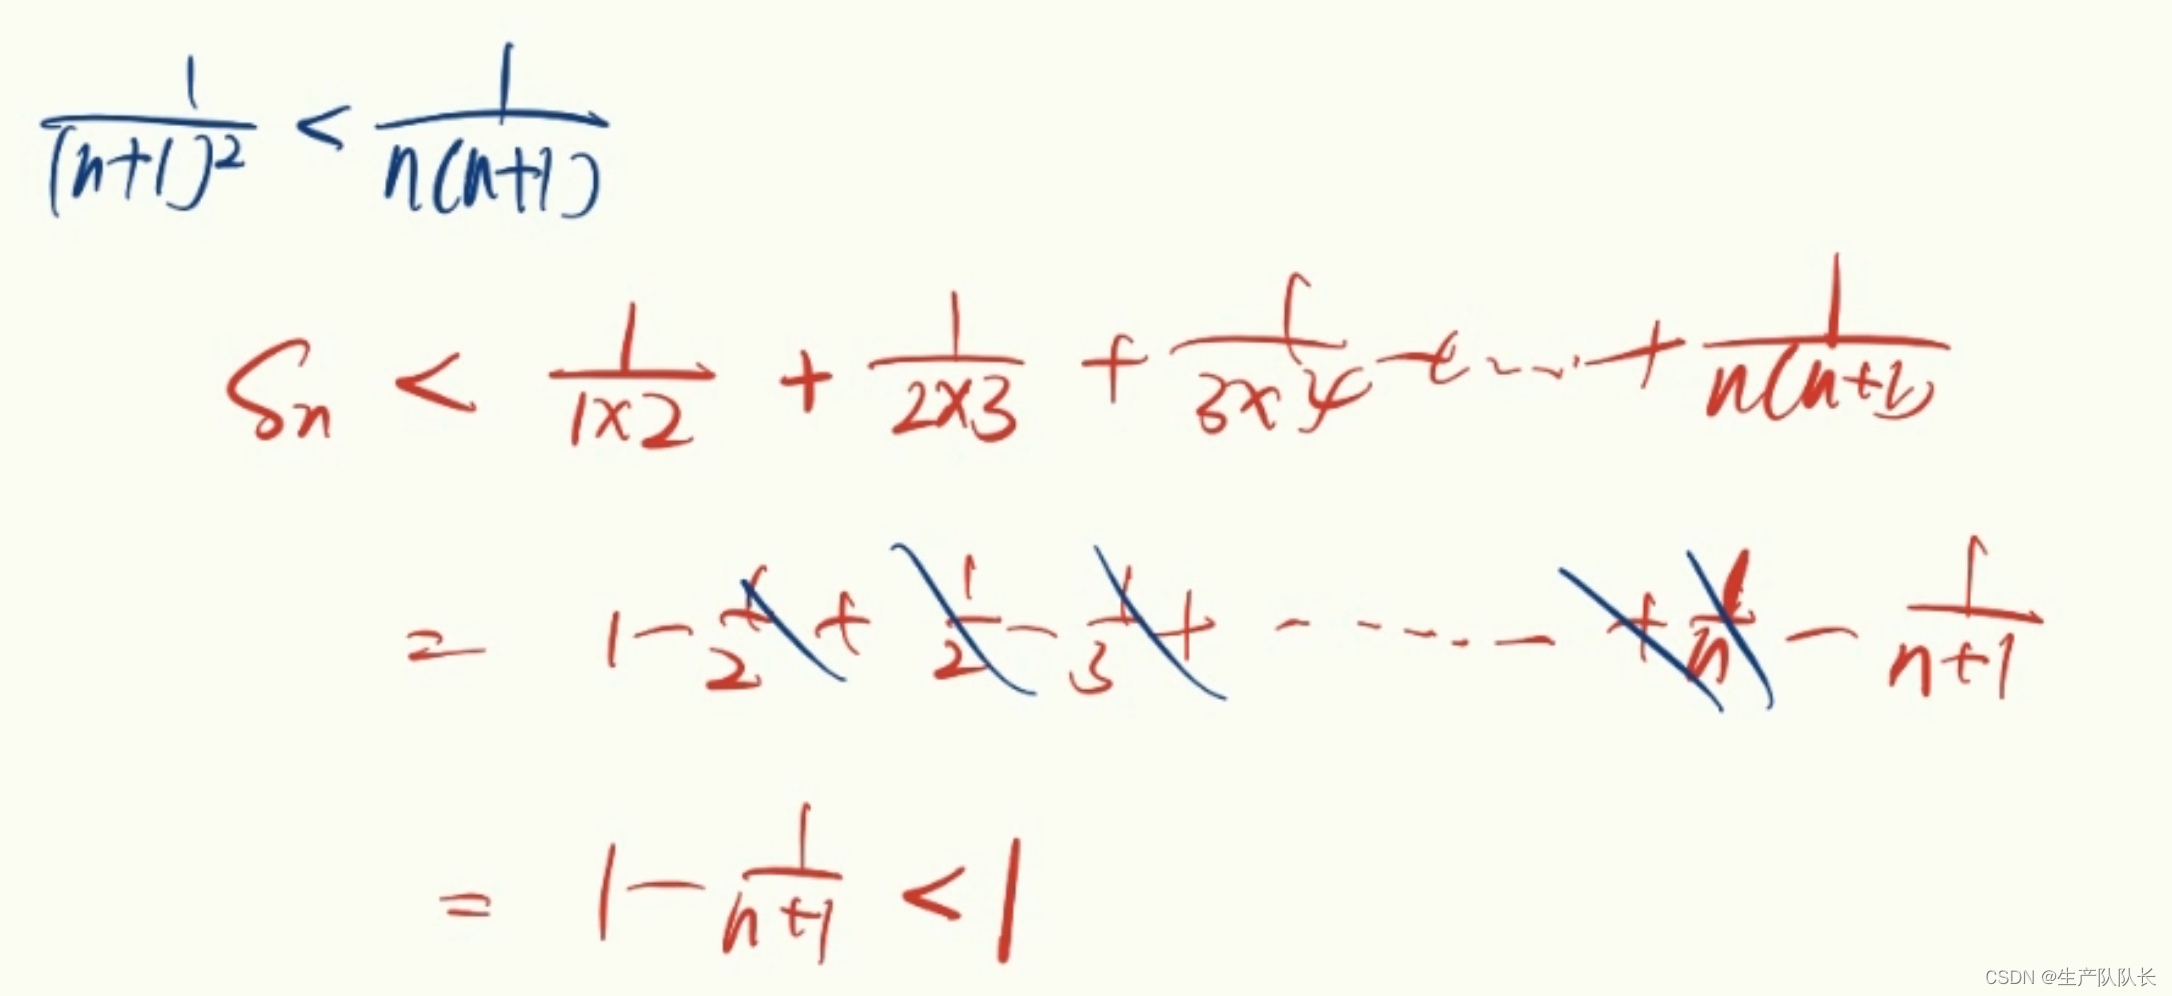 1/(n+1)² < 1/(n(n+1))
Sn < 1/(1×2) + 1/(2×3) + 1/(3×4) + ... + 1/(n(n+1))
= 1 - 1/2 + 1/2 - 1/3 + ... + 1/n - 1/(n+1)
= 1 - 1/(n+1) < 1
CSDN @生产队队长